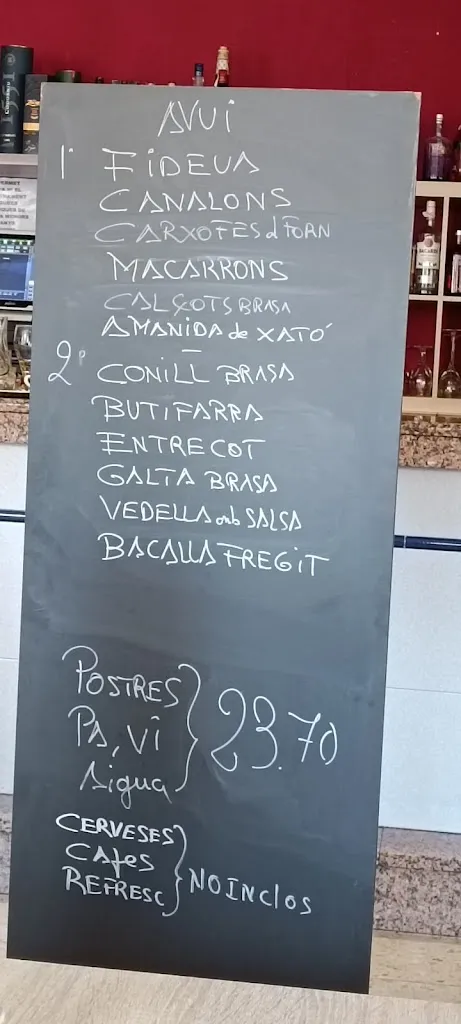 AVUI
1º FIDEUA
CANALONS
CARXOFES d FORN
MACARRONS
CALÇOTS BRASA
AMANIDA de XATÓ
2º CONILL BRASA
BUTIFARRA
ENTRECOT
GALTA BRASA
VEDELLA amb SALSA
BACALLA FREGIT
POSTRES
PA, Vi
Aigua
23.70
CERVESES
CAfes
REFRESC
NO INClOS